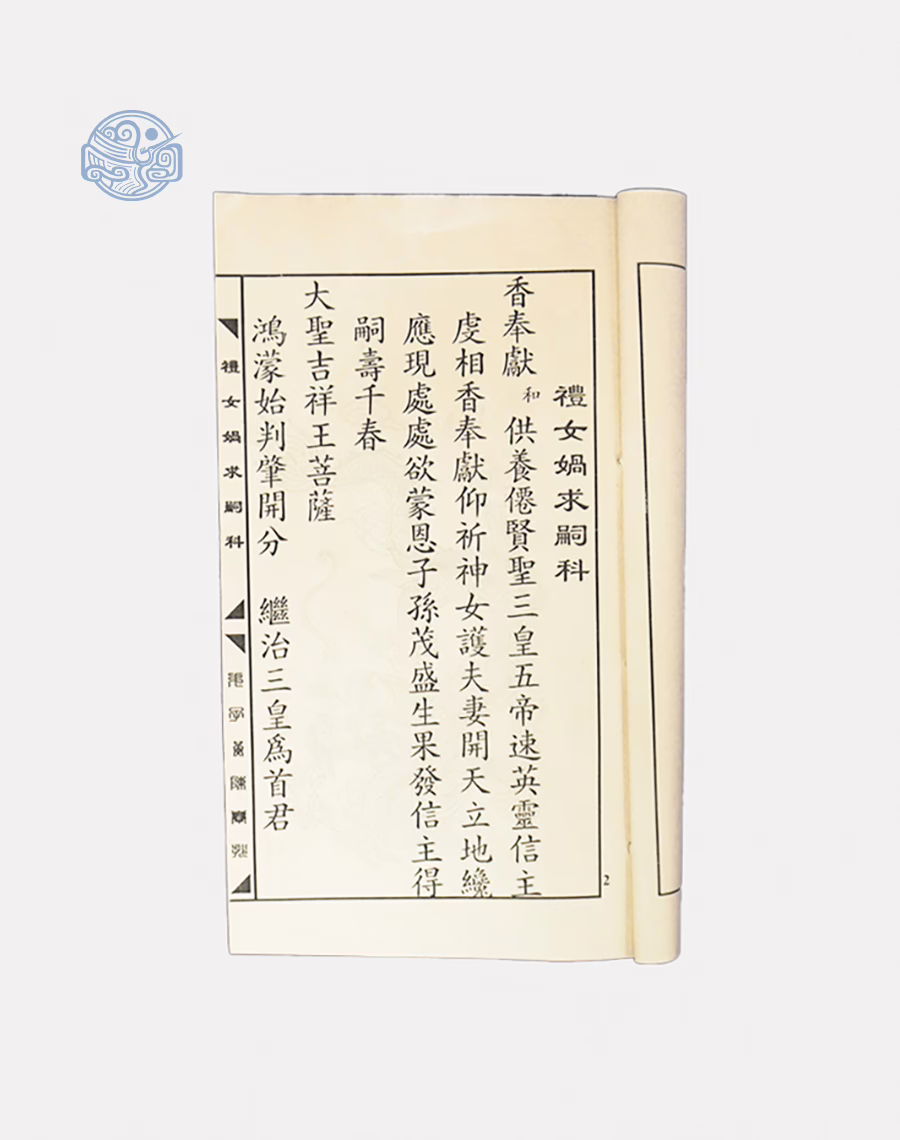 禮女媧求嗣科
香奉獻 和 供養僊賢聖三皇五帝速英靈信主
虔相香奉獻仰祈神女護夫妻開天立地纔
應現處處欲蒙恩子孫茂盛生果發信主得
嗣壽千春
大聖吉祥王菩薩
鴻濛始判肇開分 繼治三皇為首君
禮女媧求嗣科
2